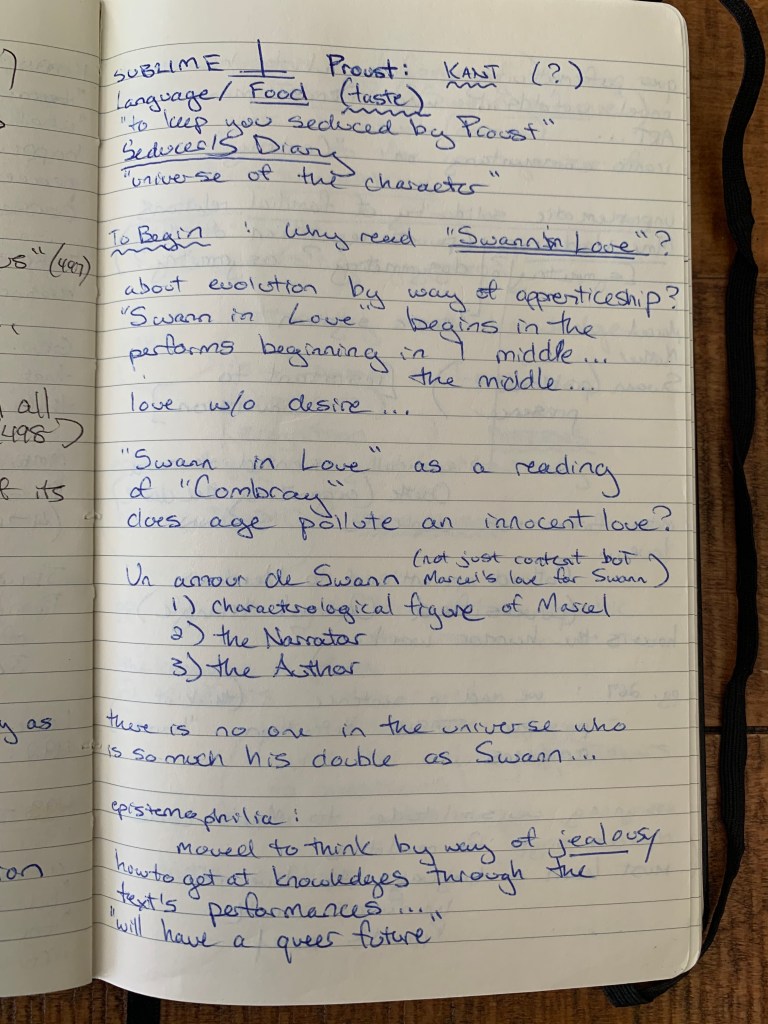 us" (497)
all
498)
f its
y as
ion
SUBLIME ⊥ Proust: KANT (?)
Language/ Food (taste)
"to keep you seduced by Proust"
Seducer's Diary
"universe of the character"
To Begin : Why read "Swann in Love"?
about evolution by way of apprenticeship?
"Swann in Love" begins in the
performs beginning in middle...
the middle...
love w/o desire...
"Swann in Love" as a reading
of "Combray"
does age pollute an innocent love?
(not just content but
Un amour de Swann Marcel's love for Swann)
1) characterological figure of Marcel
2) the Narrator
3) the Author
there is no one in the universe who
is so much his double as Swann...
epistemophilia:
moved to think by way of jealousy
how to get at knowledges through the
text's performances...
"will have a queer future"